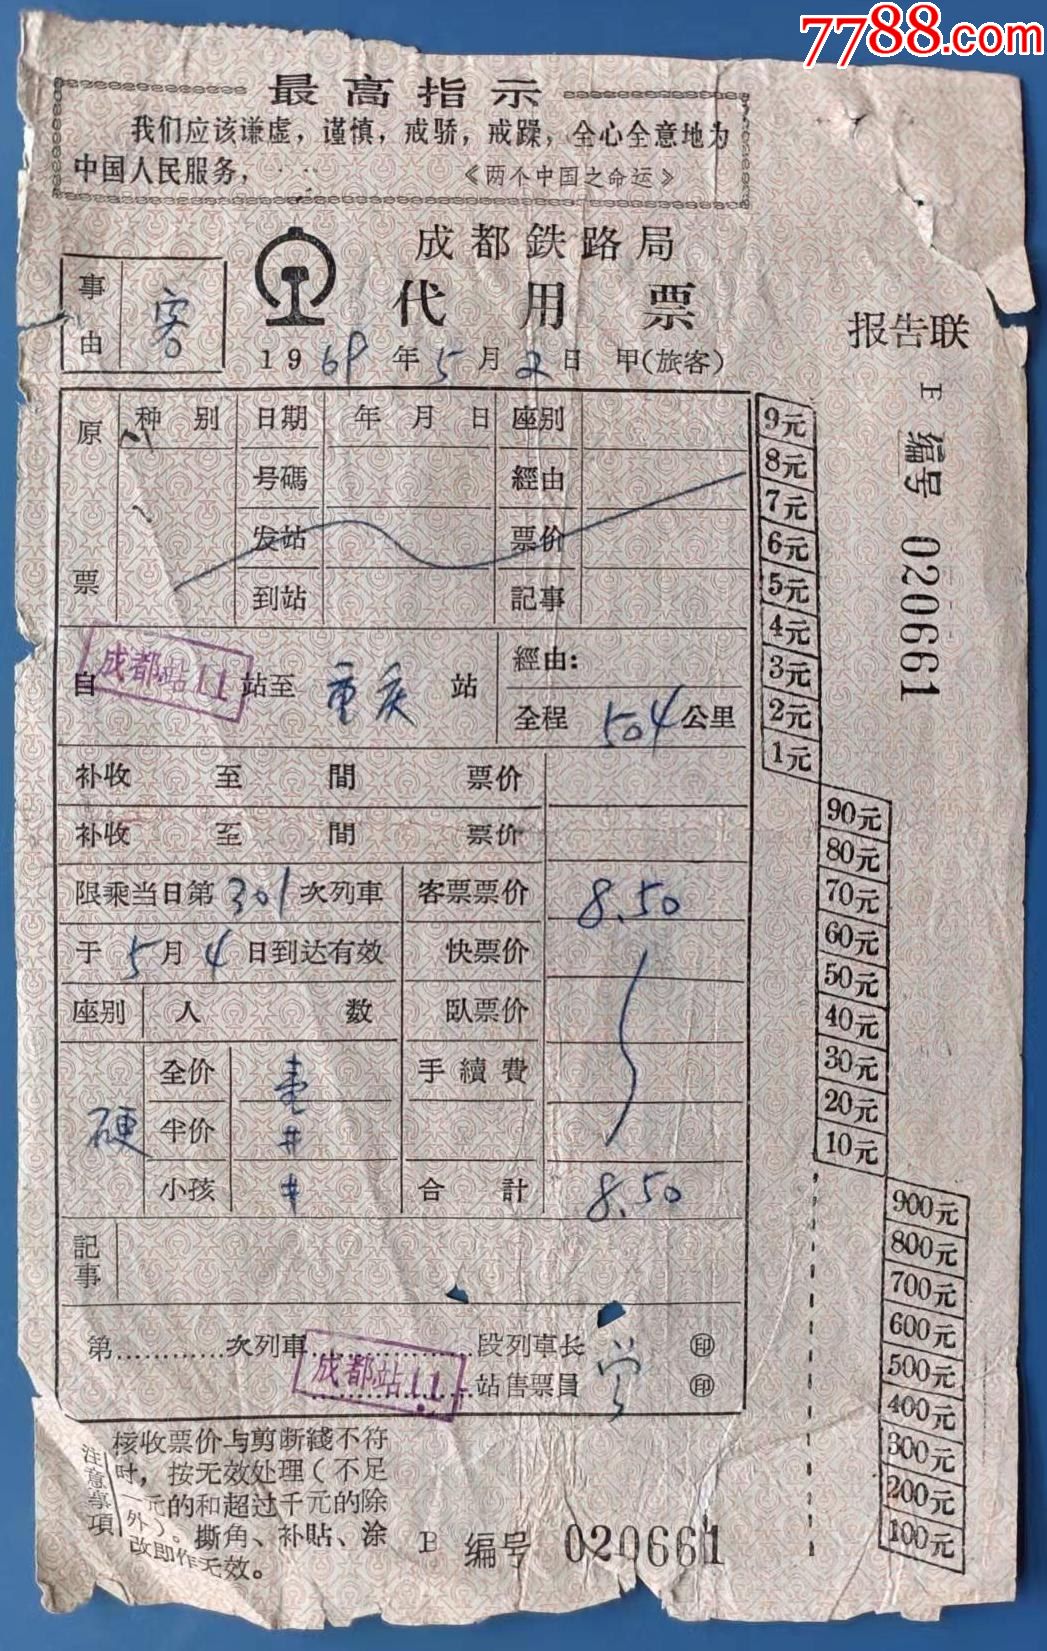 7788.com
最高指示
我们应该谦虚，谨慎，戒骄，戒躁，全心全意地为
中国人民服务，
《两个中国之命运》
成都鉄路局
事由 客
代用票
报告联
1969年5月2日 甲(旅客)
原票 种别 日期 年 月 日 座别
号碼 經由
发站 票价
到站 記事
自 成都站11 站至 重庆 站 經由：
全程 504 公里
补收 至 間 票价
补收 至 間 票价
限乘当日第 301 次列車 客票票价 8.50
于 5 月 4 日到达有效 快票价
座别 人数 臥票价
硬 全价 壹 手續費
半价 #
小孩 # 合計 8.50
記事
第............次列車 段列車长 印
成都站11 站售票員 印
注意事項
核收票价与剪断綫不符
时，按无效处理（不足
一元的和超过千元的除
外）。撕角、补貼、涂
改即作无效。
B 编号 020661
9元
8元
7元
6元
5元
4元
3元
2元
1元
90元
80元
70元
60元
50元
40元
30元
20元
10元
900元
800元
700元
600元
500元
400元
300元
200元
100元
编号 020661